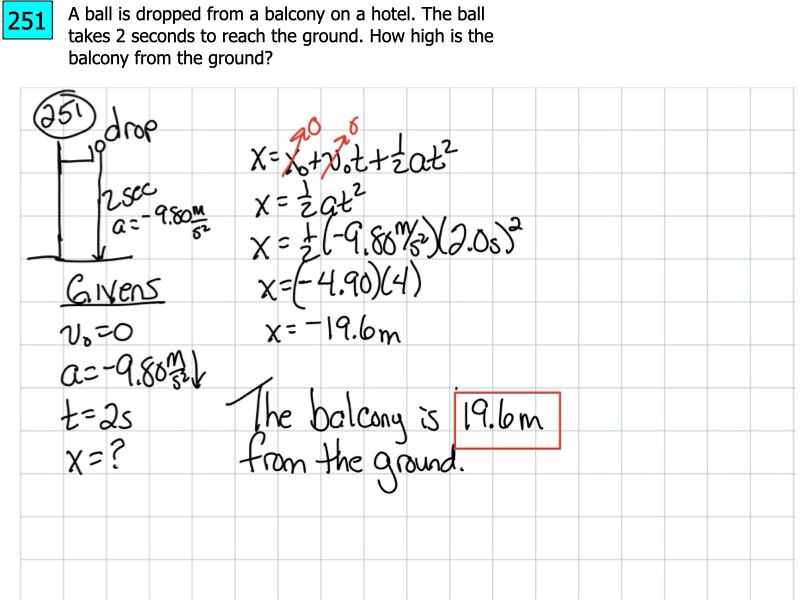 251
A ball is dropped from a balcony on a hotel. The ball
takes 2 seconds to reach the ground. How high is the
balcony from the ground?
251
drop
2 sec
a=-9.80 m/s²
Givens
v₀=0
a=-9.80 m/s² ↓
t=2s
x=?
x=x₀+v₀t+½at²
0
0
x=½at²
x=½(-9.80 m/s²)(2.0s)²
x=(-4.90)(4)
x=-19.6m
The balcony is 19.6m
from the ground.